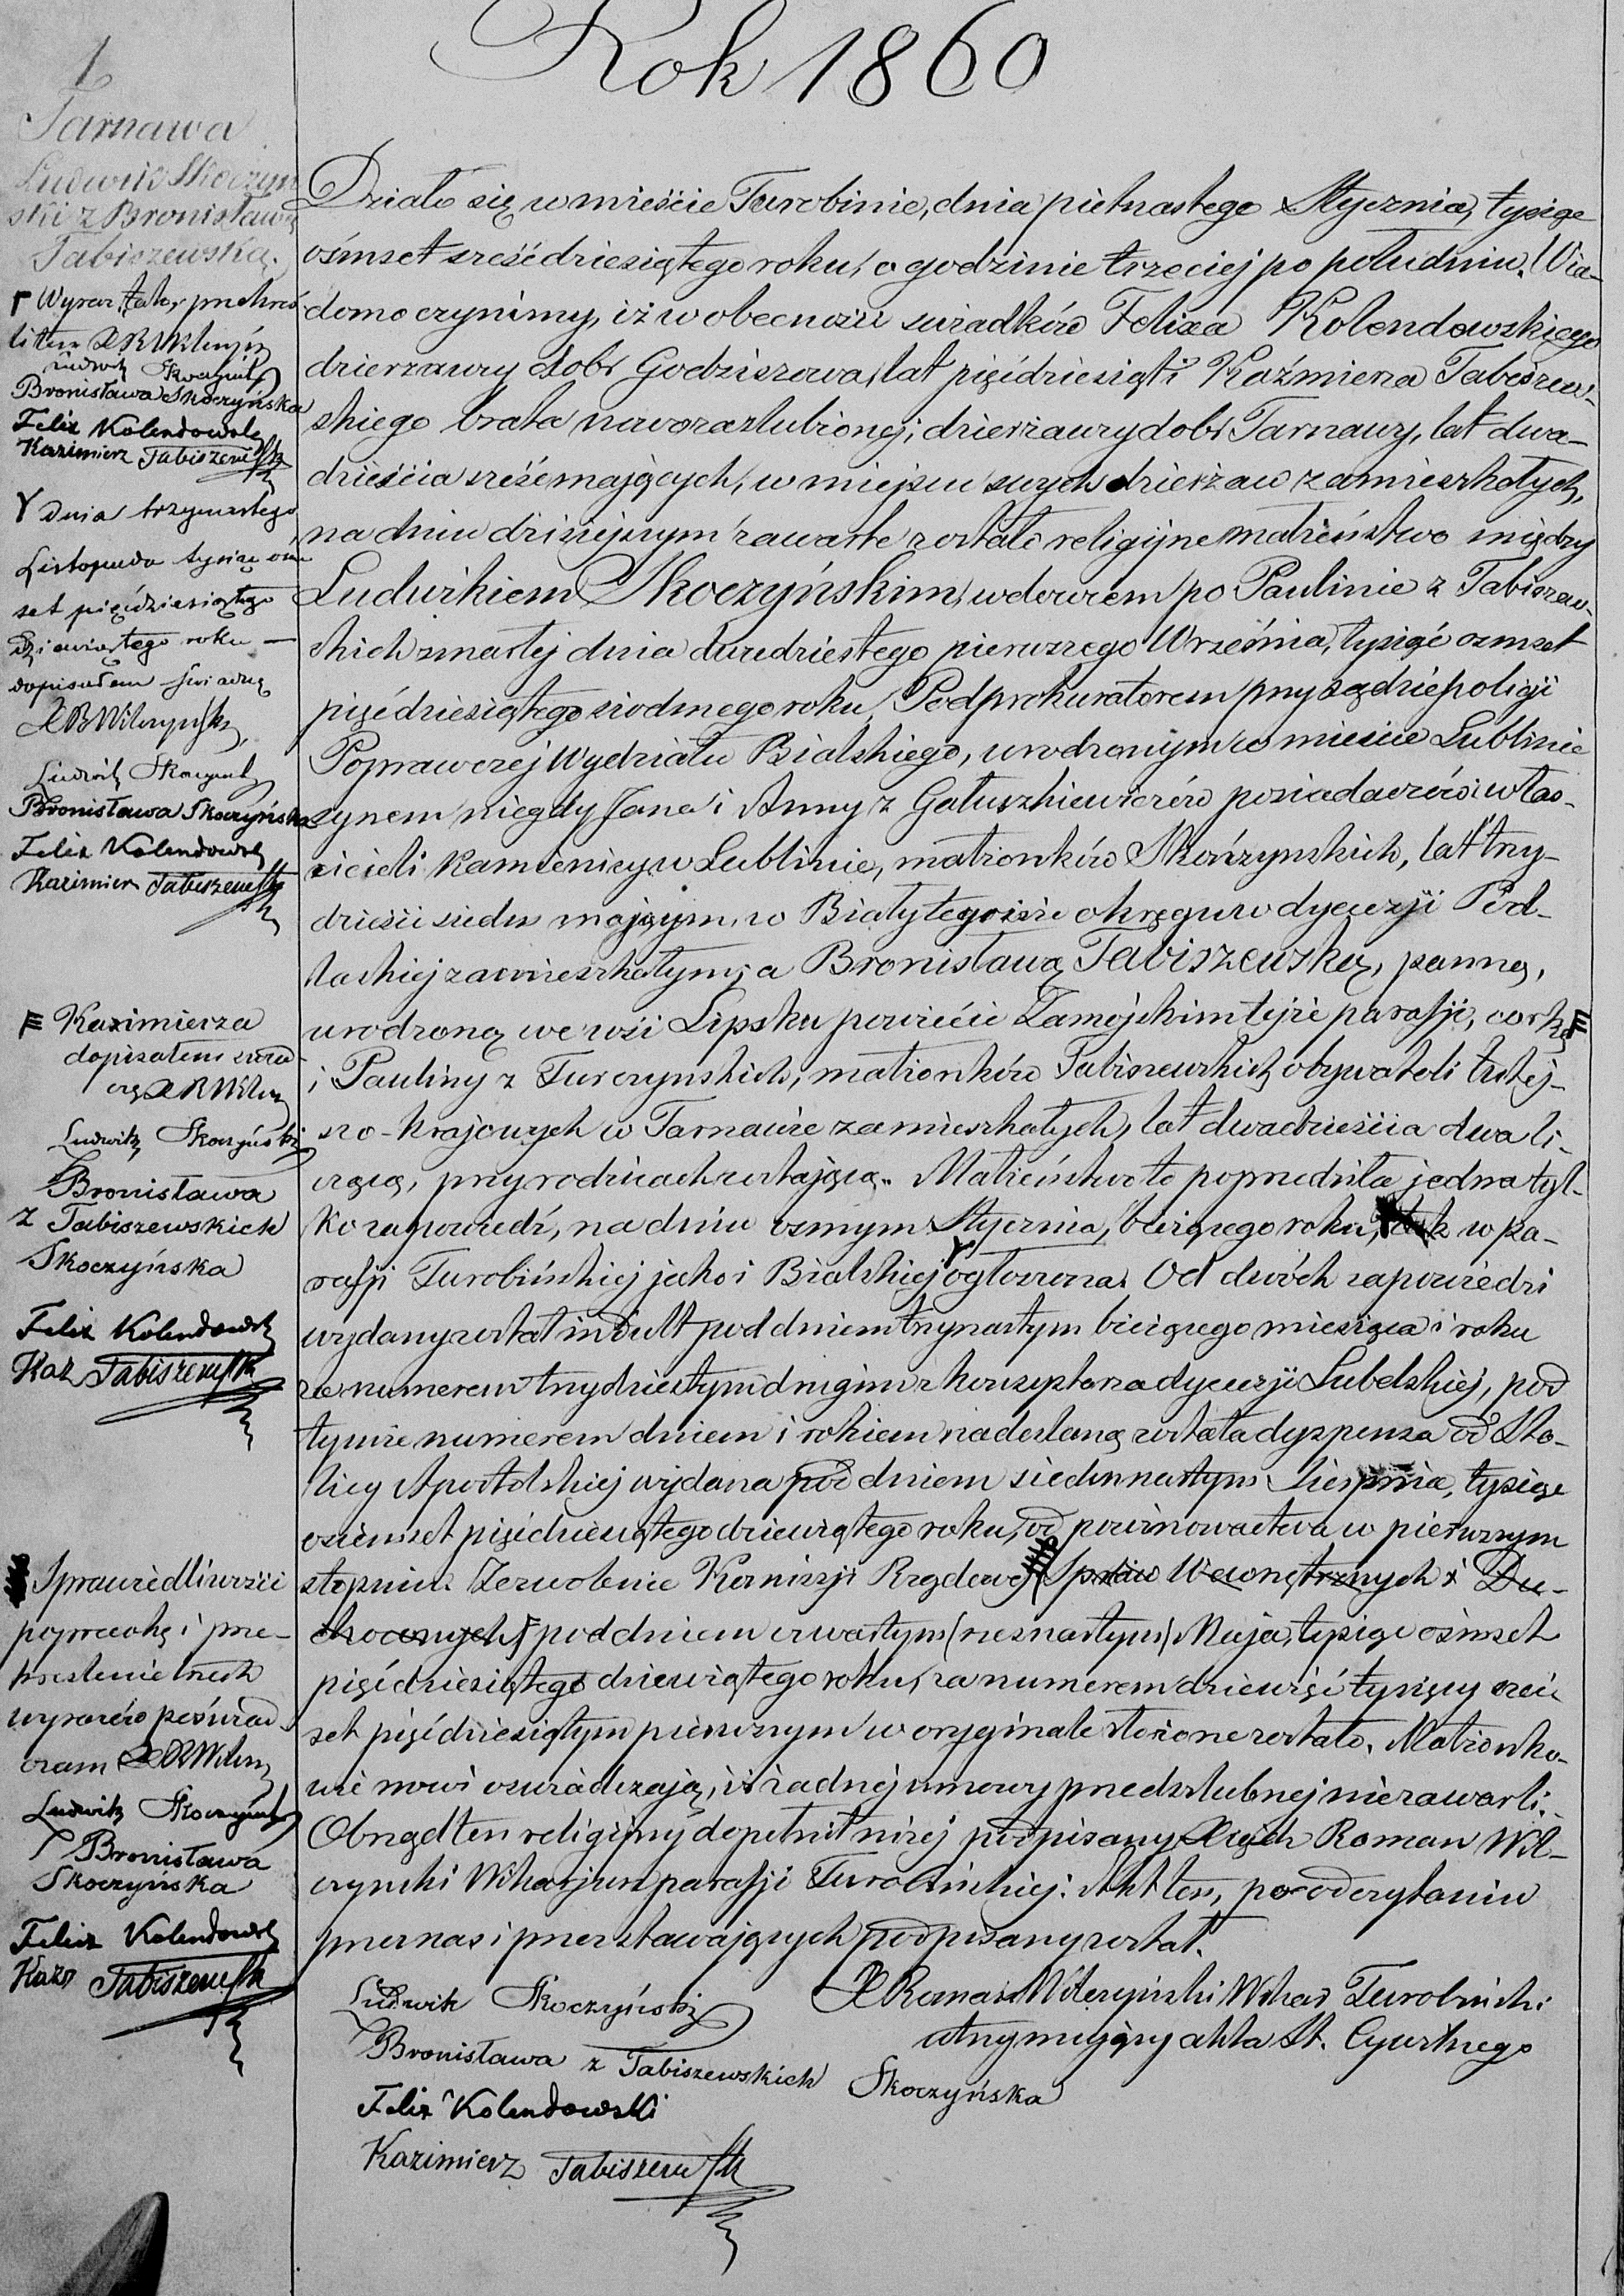 Rok 1860
1
Tarnawa
Ludwik Skoczyń
ski z Bronisławą
Tabiszewską.
Wyraz tak przekreś
litem XRWilczyń
Ludwik Skoczyński
Bronisława Skoczyńska
Felix Kolendowski
Kazimierz Tabiszewski
Dnia trzynastego
Listopada tysiąc ośm
set pięćdziesiątego
dziewiątego roku —
dopisałem świadczę
XRWilczyński
Ludwik Skoczyński
Bronisława Skoczyńska
Felix Kolendowski
Kazimierz Tabiszewski
Kazimierza
dopisałem świad
czę XRWilcz
Ludwik Skoczyński
Bronisława
z Tabiszewskich
Skoczyńska
Felix Kolendowski
Kaz Tabiszewski
Sprawiedliwości
poprawkę i prze-
kreślenie trzech
wyrazów poświad
czam XRWilcz
Ludwik Skoczyński
Bronisława
Skoczyńska
Felix Kolendowski
Kazr Tabiszewski
Działo się w mieście Turobinie, dnia pietnastego Stycznia, tysiąc
ośmset sześćdziesiątego roku, o godzinie trzeciej po południu. Wia-
domo czynimy, iż w obecności świadków Felixa Kolendowskiego
dzierzawcy dobr Godziszowa, lat pięćdziesiąt i Kaźmierza Tabiszew-
skiego brata nowozaslubionej, dzierżawcy dobr Tarnawy, lat dwa-
dzieścia sześć mających, w miejscu swych dzierżaw zamieszkałych,
na dniu dzisiejszym zawarte zostało religijne małżeństwo między
Ludwikiem Skoczyńskim, wdowcem po Paulinie z Tabiszew-
skich zmarłej dnia dwudziestego pierwszego Września, tysiąć ozmset
pięćdziesiątego siodmego roku, Podprokuratorem przy sądzie policji
Poprawczej Wydziału Bialskiego, urodzonym w mieście Lublinie
synem niegdy Jana i Anny z Gałuszkiewiczów posiadaczów i właś-
cicieli kamienicy w Lublinie, małżonków Skoczynskich, lat trzy-
dzieści siedm mającym, w Białytegoiże okręgu w dyecezji Pod-
laskiej zamieszkałym; a Bronisławą Tabiszewską, panną,
urodzoną we wsi Lipsku powiecie Zamojskim tejże parafji, corką
i Pauliny z Turczynskich, małżonków Tabiszewskich obywateli tutej-
szo-krajowych w Tarnawie zamieszkałych, lat dwadzieścia dwa li-
czącą, przy rodzicach zostającą. Małżeństwo to poprzedziła jedna tyl-
ko zapowiedź, na dniu osmym Stycznia, bieżącego roku, tak w pa-
rafji Turobińskiej jako i Bialskiej ogłoszona. Od dwóch zapowiedzi
wydany został indult pod dniem trzynastym bieżącego miesiąca i roku
za numerem trzydziestym drugim z konsystorza dyecezji Lubelskiej, pod
tymże numerem dniem i rokiem nadesłaną została dyspensa od Sto-
licy Apostolskiej wydana pod dniem siedmnastym Sierpnia, tysiąc
ośiemset pięćdziesiątego dziewiątego roku, od powinowactwa w pierwszym
stopniu. Zezwolenie Komissji Rządowej Spraw Wewnętrznych i Du-
chownych pod dniem czwartym (szesnastym) Maja, tysiąc ośmset
pięćdziesiątego dziewiątego roku, za numerem dziewięć tysięcy sześć
set pięćdziesiątym pierwszym w oryginale złożone zostało. Małżonko-
wie nowi oswiadczają, iż żadnej umowy przedślubnej nie zawarli.
Obrządek ten religijny dopełnił niżej podpisany Xiądz Roman Wil-
czynski Wikarjusz parafji Turobińskiej. Akt ten, po odczytaniu
przez nas i przez stawających podpisany został.
Ludwik Skoczyński
Bronisława z Tabiszewskich Skoczyńska
Felix Kolendowski
Kazimierz Tabiszewski
X Roman Wilczyński Wikar Turobiński
utrzymujący akta St. Cywilnego